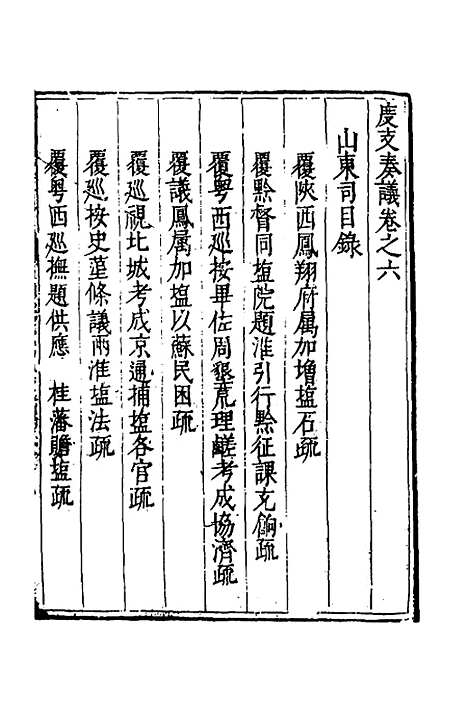 度支奏議卷之六
山東司目錄
覆陝西鳳翔府屬加增塩石疏
覆黔督同塩院題淮引行黔征課充餉疏
覆粤西巡按畢佐周墾荒理鹺考成協濟疏
覆議鳳屬加塩以蘇民困疏
覆巡視北城考成京通捕塩各官疏
覆巡按史𡎊條議兩淮塩法疏
覆粤西巡撫題供應　桂藩贍塩疏